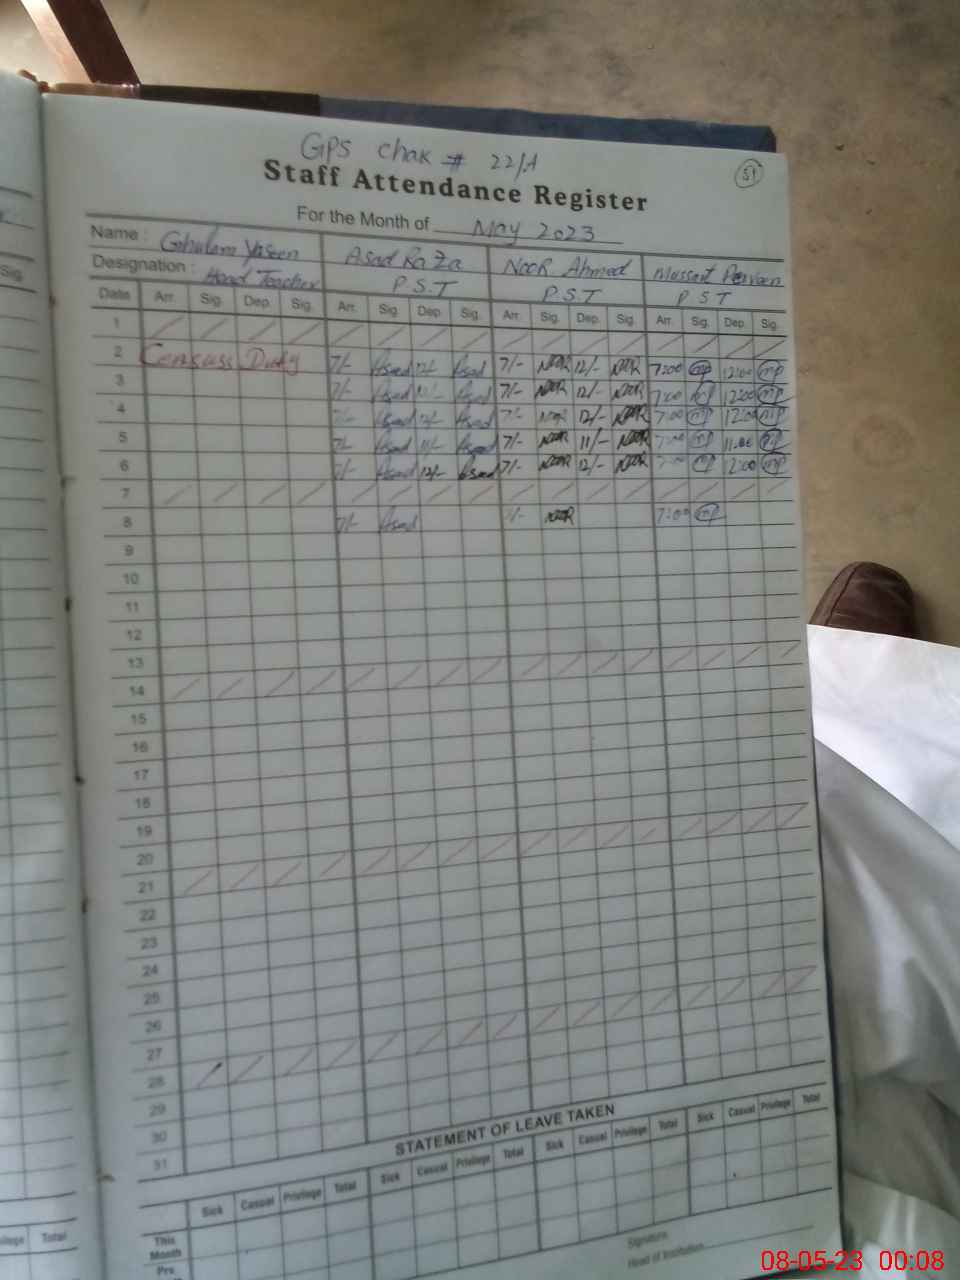 GPS Chak # 22/A
51
Staff Attendance Register
For the Month of May 2023
Name : Ghulam Yaseen Asad RaZa NOOR Ahmed Mussart Perveen
Designation : Head Teacher P.S.T P.S.T P S T
Date Arr. Sig. Dep. Sig. Arr. Sig. Dep. Sig. Arr. Sig. Dep. Sig. Arr. Sig. Dep. Sig.
1
2 Censuss Duty 7/- Asad 12/- Asad 7/- NOOR 12/- NOOR 7:00 mp 12:00 mp
3 7/- Asad 12/- Asad 7/- NOOR 12/- NOOR 7:00 mp 12:00 mp
4 7/- Asad 12/- Asad 7/- NOOR 12/- NOOR 7:00 mp 12:00 mp
5 7/- Asad 11/- Asad 7/- NOOR 11/- NOOR 7:00 mp 11:00 mp
6 7/- Asad 12/- Asad 7/- NOOR 12/- NOOR 7:00 mp 12:00 mp
7
8 7/- Asad 7/- NOOR 7:00 mp
9
10
11
12
13
14
15
16
17
18
19
20
21
22
23
24
25
26
27
28
29
30
31
STATEMENT OF LEAVE TAKEN
Sick Casual Privilege Total Sick Casual Privilege Total Sick Casual Privilege Total Sick Casual Privilege Total
This
Month
Pre
Signature
Head of Institution
Sig.
Total
08-05-23 00:08